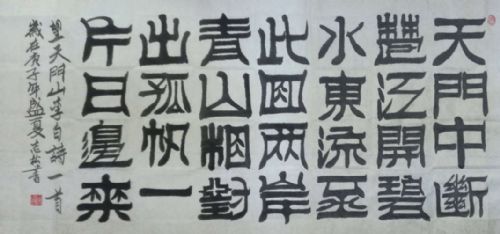 天門中斷
楚江開碧
水東流至
此回两岸
青山相對
出孤帆一
片日邊来
望天門山李白詩一首
歲在庚子年盛夏 書